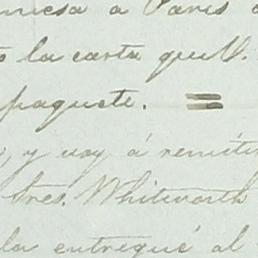 mesa a Paris
la carta que V.
paquete. =
, y voy á remitir
tres. Whitworth
la entregué al